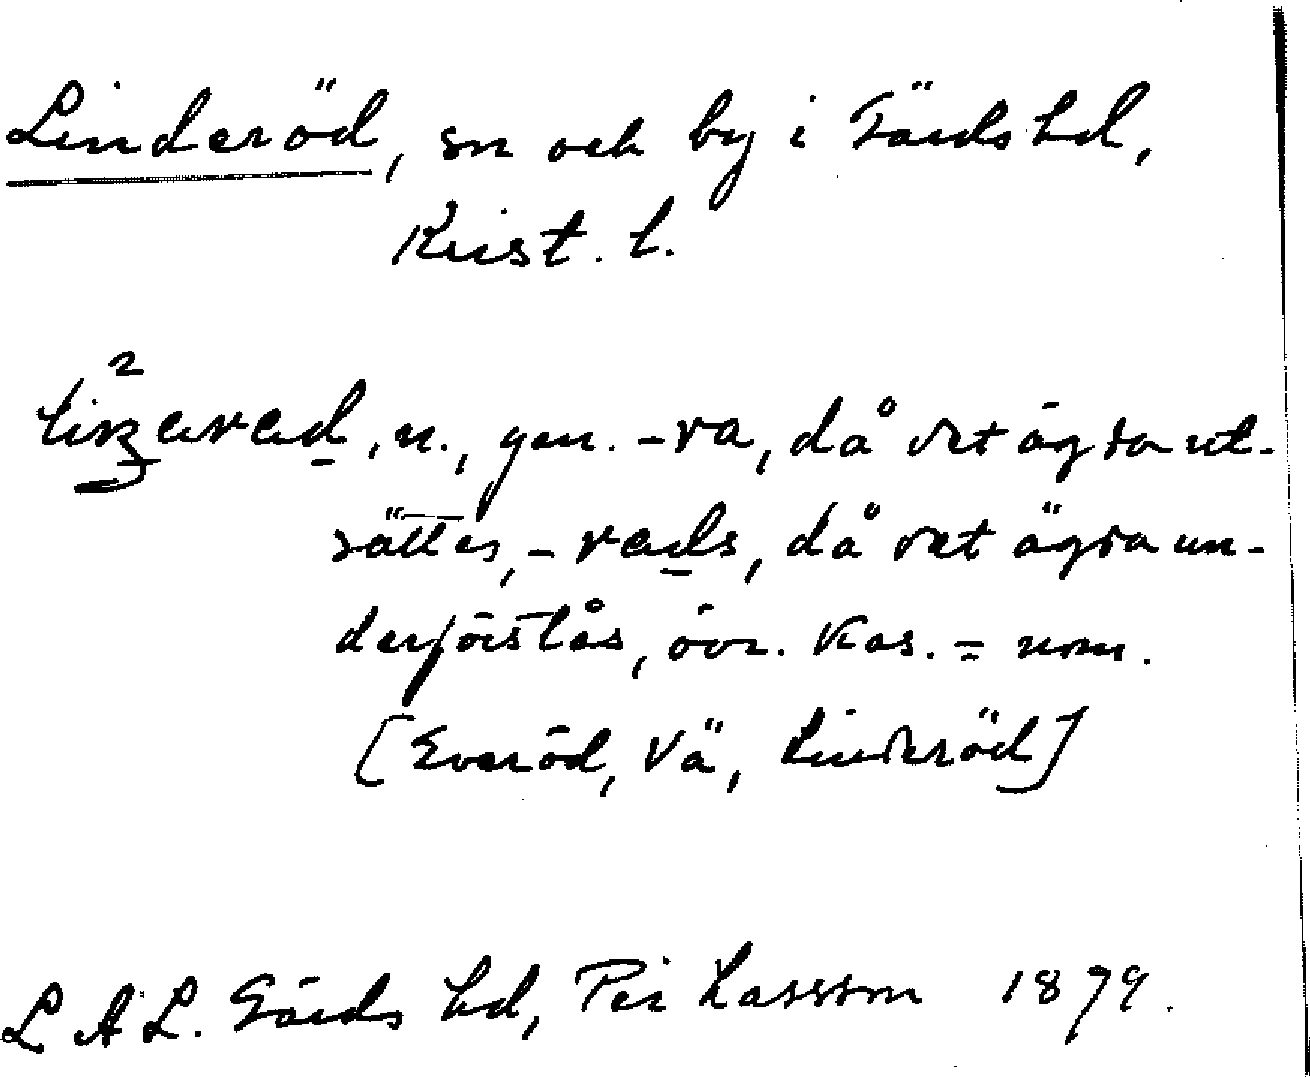 Linderöd, sn och by i Gärds hd,
Krist. l.
gen. -ra, då det ägda ut-
sättes, - rads, då det ägda un-
derförstås, övr. kas. = nom.
[Everöd, Vä, Linderöd]
L A L. Gärds hd, Per Lasson 1879.